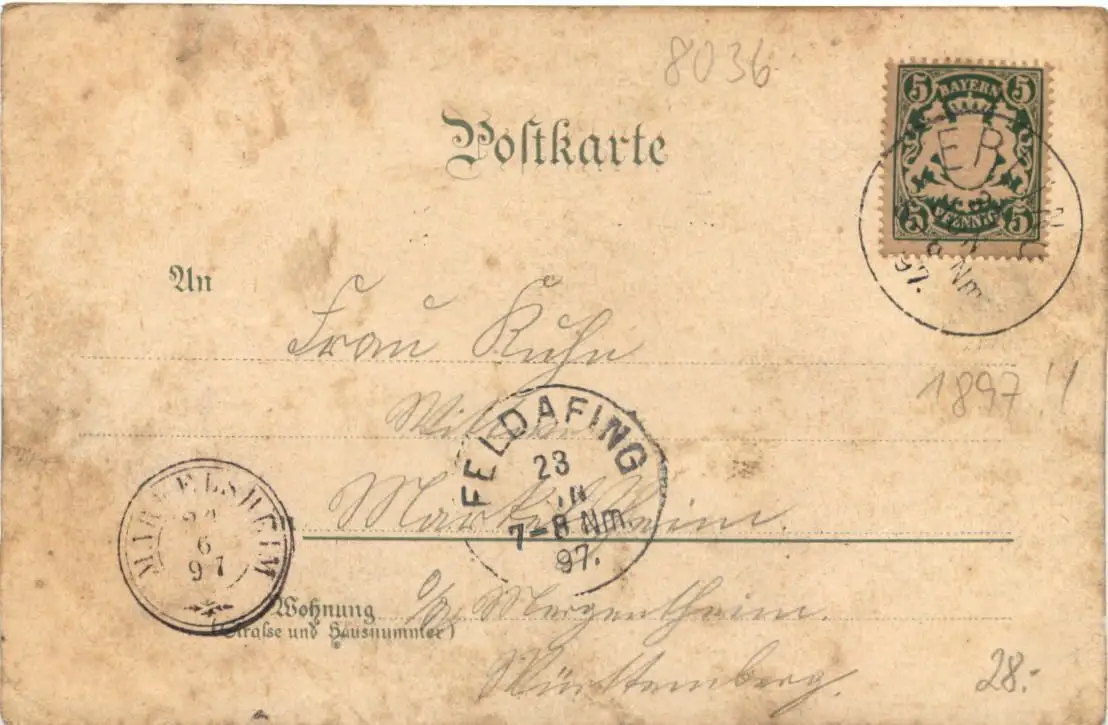 8036
5 BAYERN 5
5 PFENNIG 5
Postkarte
97.
Nm
An
Frau Kuhn
1897!!
FELDAFING
23
7-8 Nm.
97.
Markelsheim.
MARKELSHEIM
6
97
Wohnung
(Straße und Hausnummer)
o/ Mergentheim.
Württemberg.
28.-